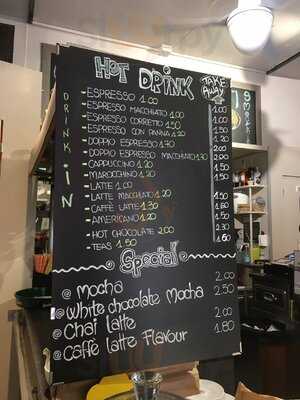 HOT DRINK
TAKE AWAY
DRINK-IN
-ESPRESSO 1.00 1.00
-ESPRESSO MACCHIATO 1.00 1.00
-ESPRESSO CORRETTO 1.50 1.50
-ESPRESSO CON PANNA 1.20
-DOPPIO ESPRESSO 1.70 2.00
-DOPPIO ESPRESSO MACCHIATO 1.70 2.00
-CAPPUCCINO 1.20 1.50
-MAROCCHINO 1.20 1.50
-LATTE 1.00
-LATTE MACCHIATO 1.20 1.50
-CAFFÈ LATTE 1.30 1.60
-AMERICANO 1.20 1.50
-HOT CHOCOLATE 2.00 2.30
-TEAS 1.50
Special
@ Mocha 2.00
@ White chocolate Mocha 2.50
@ Chai latte 2.00
@ Caffè latte Flavour 1.80